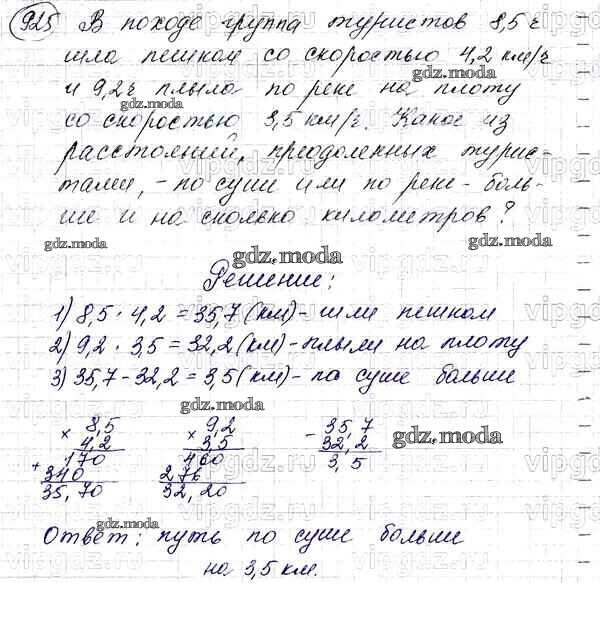 925 В походе группа туристов 8,5 ч
шла пешком со скоростью 4,2 км/ч
и 9,2 ч плыла по реке на плоту
со скоростью 3,5 км/ч. Какое из
расстояний, преодоленных турис-
тами, - по суше или по реке - боль-
ше и на сколько километров?
Решение:
1) 8,5 · 4,2 = 35,7 (км) - шли пешком
2) 9,2 · 3,5 = 32,2 (км) - плыли на плоту
3) 35,7 - 32,2 = 3,5 (км) - по суше больше
× 8,5 × 9,2 - 35,7
4,2 3,5 32,2
170 460 3,5
+ 340 276
35,70 32,20
Ответ: путь по суше больше
на 3,5 км.
gdz.moda
gdz.moda
gdz.moda
gdz.moda
gdz.moda
gdz.moda
gdz.moda
gdz.moda
vipgdz.ru